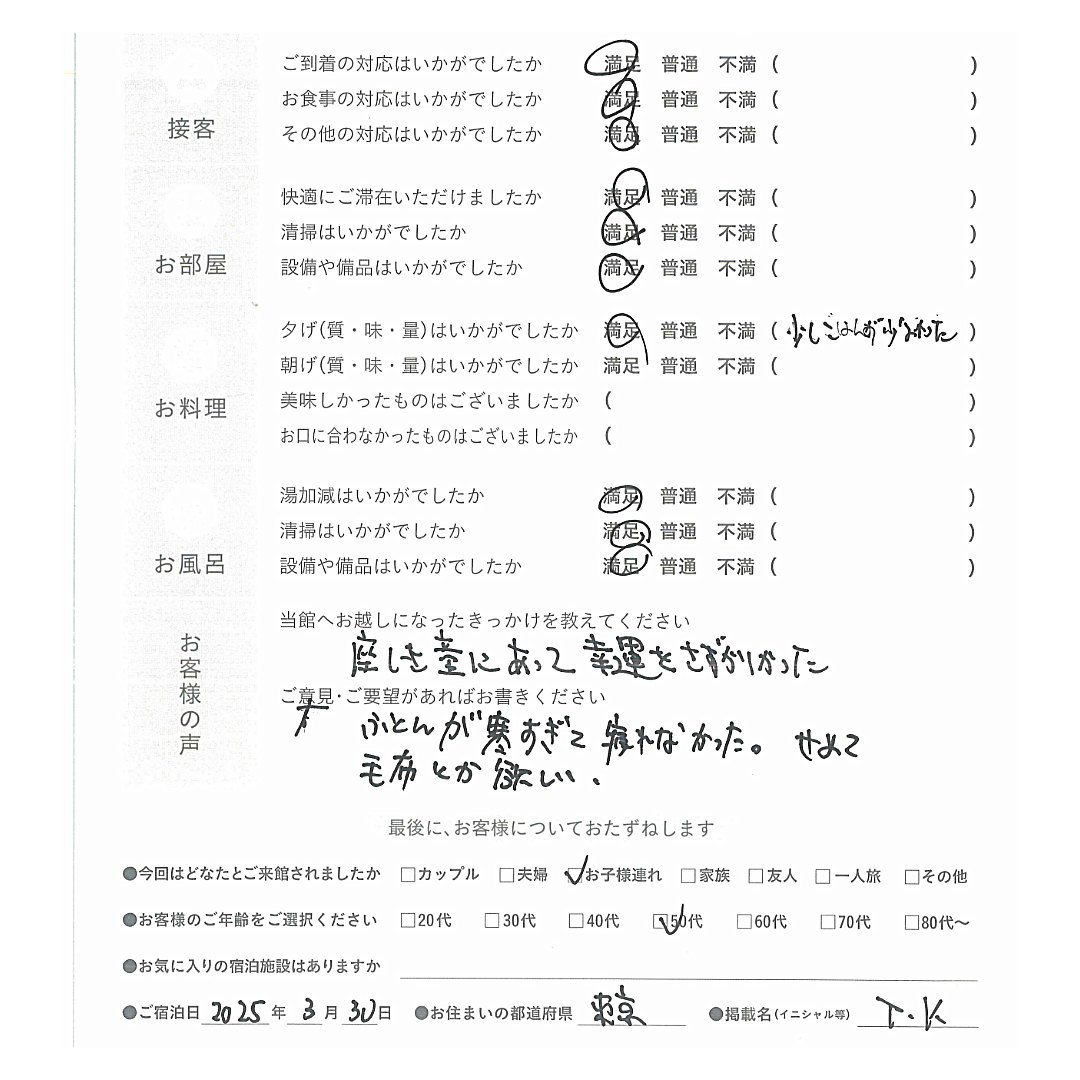 接客
ご到着の対応はいかがでしたか 満足 普通 不満 ( )
お食事の対応はいかがでしたか 満足 普通 不満 ( )
その他の対応はいかがでしたか 満足 普通 不満 ( )
お部屋
快適にご滞在いただけましたか 満足 普通 不満 ( )
清掃はいかがでしたか 満足 普通 不満 ( )
設備や備品はいかがでしたか 満足 普通 不満 ( )
お料理
夕げ(質・味・量)はいかがでしたか 満足 普通 不満 (少しごはんが少なかった)
朝げ(質・味・量)はいかがでしたか 満足 普通 不満 ( )
美味しかったものはございましたか ( )
お口に合わなかったものはございましたか ( )
お風呂
湯加減はいかがでしたか 満足 普通 不満 ( )
清掃はいかがでしたか 満足 普通 不満 ( )
設備や備品はいかがでしたか 満足 普通 不満 ( )
お客様の声
当館へお越しになったきっかけを教えてください
座しき にあって幸運をさずかりかった
ご意見・ご要望があればお書きください
ふとんが寒すぎて寝れなかった。せめて
毛布とか欲しい、
最後に、お客様についておたずねします
●今回はどなたとご来館されましたか □カップル □夫婦 ☑お子様連れ □家族 □友人 □一人旅 □その他
●お客様のご年齢をご選択ください □20代 □30代 □40代 ☑50代 □60代 □70代 □80代〜
●お気に入りの宿泊施設はありますか
●ご宿泊日 2025 年 3 月 30 日 ●お住まいの都道府県 東京 ●掲載名(イニシャル等) T.K